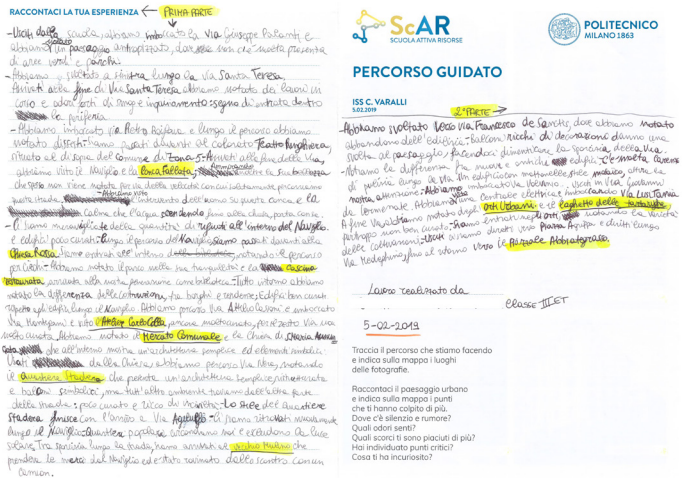 RACCONTACI LA TUA ESPERIENZA
PRIMA PARTE
-Usciti dalla scuola, abbiamo imboccato la via Giuseppe Palanti, e
abbiamo notato un paesaggio antropizzato, dove non che molta presenza
di aree verdi e parchi.
-Abbiamo svoltato a sinistra lungo la via Santa Teresa.
Arrivati alla fine di Via Santa Teresa abbiamo notato dei lavori in
corso e odori forti di smog e inquinamento segno di entrata dentro
la periferia
-Abbiamo imboccato via Pietro Boifava e lungo il percorso abbiamo
notato diversi passati davanti al colorato Teatro Ringhiera,
situato al di sopra del comune di Zona 5-Arrivati alla fine della via,
abbiamo visto il Naviglio e la Conca Fallata,
che spesso non viene notata per via della velocità con cui solitamente percorriamo
queste strade. intervento dell'uomo su questa conca e la
calma che l'acqua, scendendo fino alla chiusa, porta con se.
-Ci siamo meravigliati della quantità di rifiuti all'interno del Naviglio.
e edifici poco curati. Lungo il percorso del Naviglio siamo passati davanti alla
Chiesa Rossa. Siamo entrati all'interno notando il percorso
per ciechi-Abbiamo notato il parco nella sua tranquillità e la cascina
restaurata, arrivata alla nostra generazione come biblioteca-Tutto intorno abbiamo
notato la differenza delle costruzioni, tra borghi e rendene; Edifici ben curati
rispetto agli edifici lungo il Naviglio. Abbiamo percorso Via e imboccato
Via Montegani e visto l'Atelier Carlo Colla, ancora mostrando, per il resto Via una
molto curata. Abbiamo notato il Mercato Comunale e la Chiesa di S. Maria
che all'interno mostra un'architettura semplice ed elementi simbolici-
Usciti dalla Chiesa abbiamo percorso Via Neera, notando
il quartiere Stadera che portata un'architettura semplice, ristrutturata
e balconi simbolici, ma tutt'altro ambiente troviamo dall'altra parte
della strada: poco curato e ricco di -Lo stile del quartiere
Stadera finisce con l'arrivo a Via Agilulfo-Ci siamo ritrovati nuovamente
lungo il Naviglio-Quartieri popolari circondano noi e escludono la luce
solare. Tra sporcizia lungo la strada, siamo arrivati al vecchio Mulino che
prendeva le merci dal Naviglio ed è stato rovinato dallo scontro con un
camion.
ScAR
SCUOLA ATTIVA RISORSE
POLITECNICO
MILANO 1863
PERCORSO GUIDATO
ISS C. VARALLI
5.02.2019
2°PARTE
Abbiamo svoltato verso via Francesco de Sanctis, dove abbiamo notato
abbandono dell'edilizia-Balconi ricchi di decorazioni danno una
svolta al paesaggio, facendoci dimenticare la sporcizia della via
-Notiamo la differenza tra nuove e antiche edifici. C'è molta carenza
di pulizia lungo la via. Un edificio con mattonelle stile mosaico, attira la
nostra attenzione-Abbiamo imboccato Via Volvinio, usciti in Via Giovanni
da Cermenate. Abbiamo una Centrale elettrica imboccando Via Lusitania
A fine Via abbiamo notato degli Orti Urbani e il laghetto delle tartarughe,
purtroppo non ben curato-Siamo entrati negli orti, notando la varietà
delle coltivazioni-Usciti ci siamo diretti verso Piazza Agrippa e diritti lungo
Via Medeghino, fino al ritorno verso il Piazzale Abbiategrasso.
Lavoro realizzato da
Classe III ET
5-02-2019
Traccia il percorso che stiamo facendo
e indica sulla mappa i luoghi
delle fotografie.
Raccontaci il paesaggio urbano
e indica sulla mappa i punti
che ti hanno colpito di più.
Dov'è silenzio e rumore?
Quali odori senti?
Quali scorci ti sono piaciuti di più?
Hai individuato punti critici?
Cosa ti ha incuriosito?